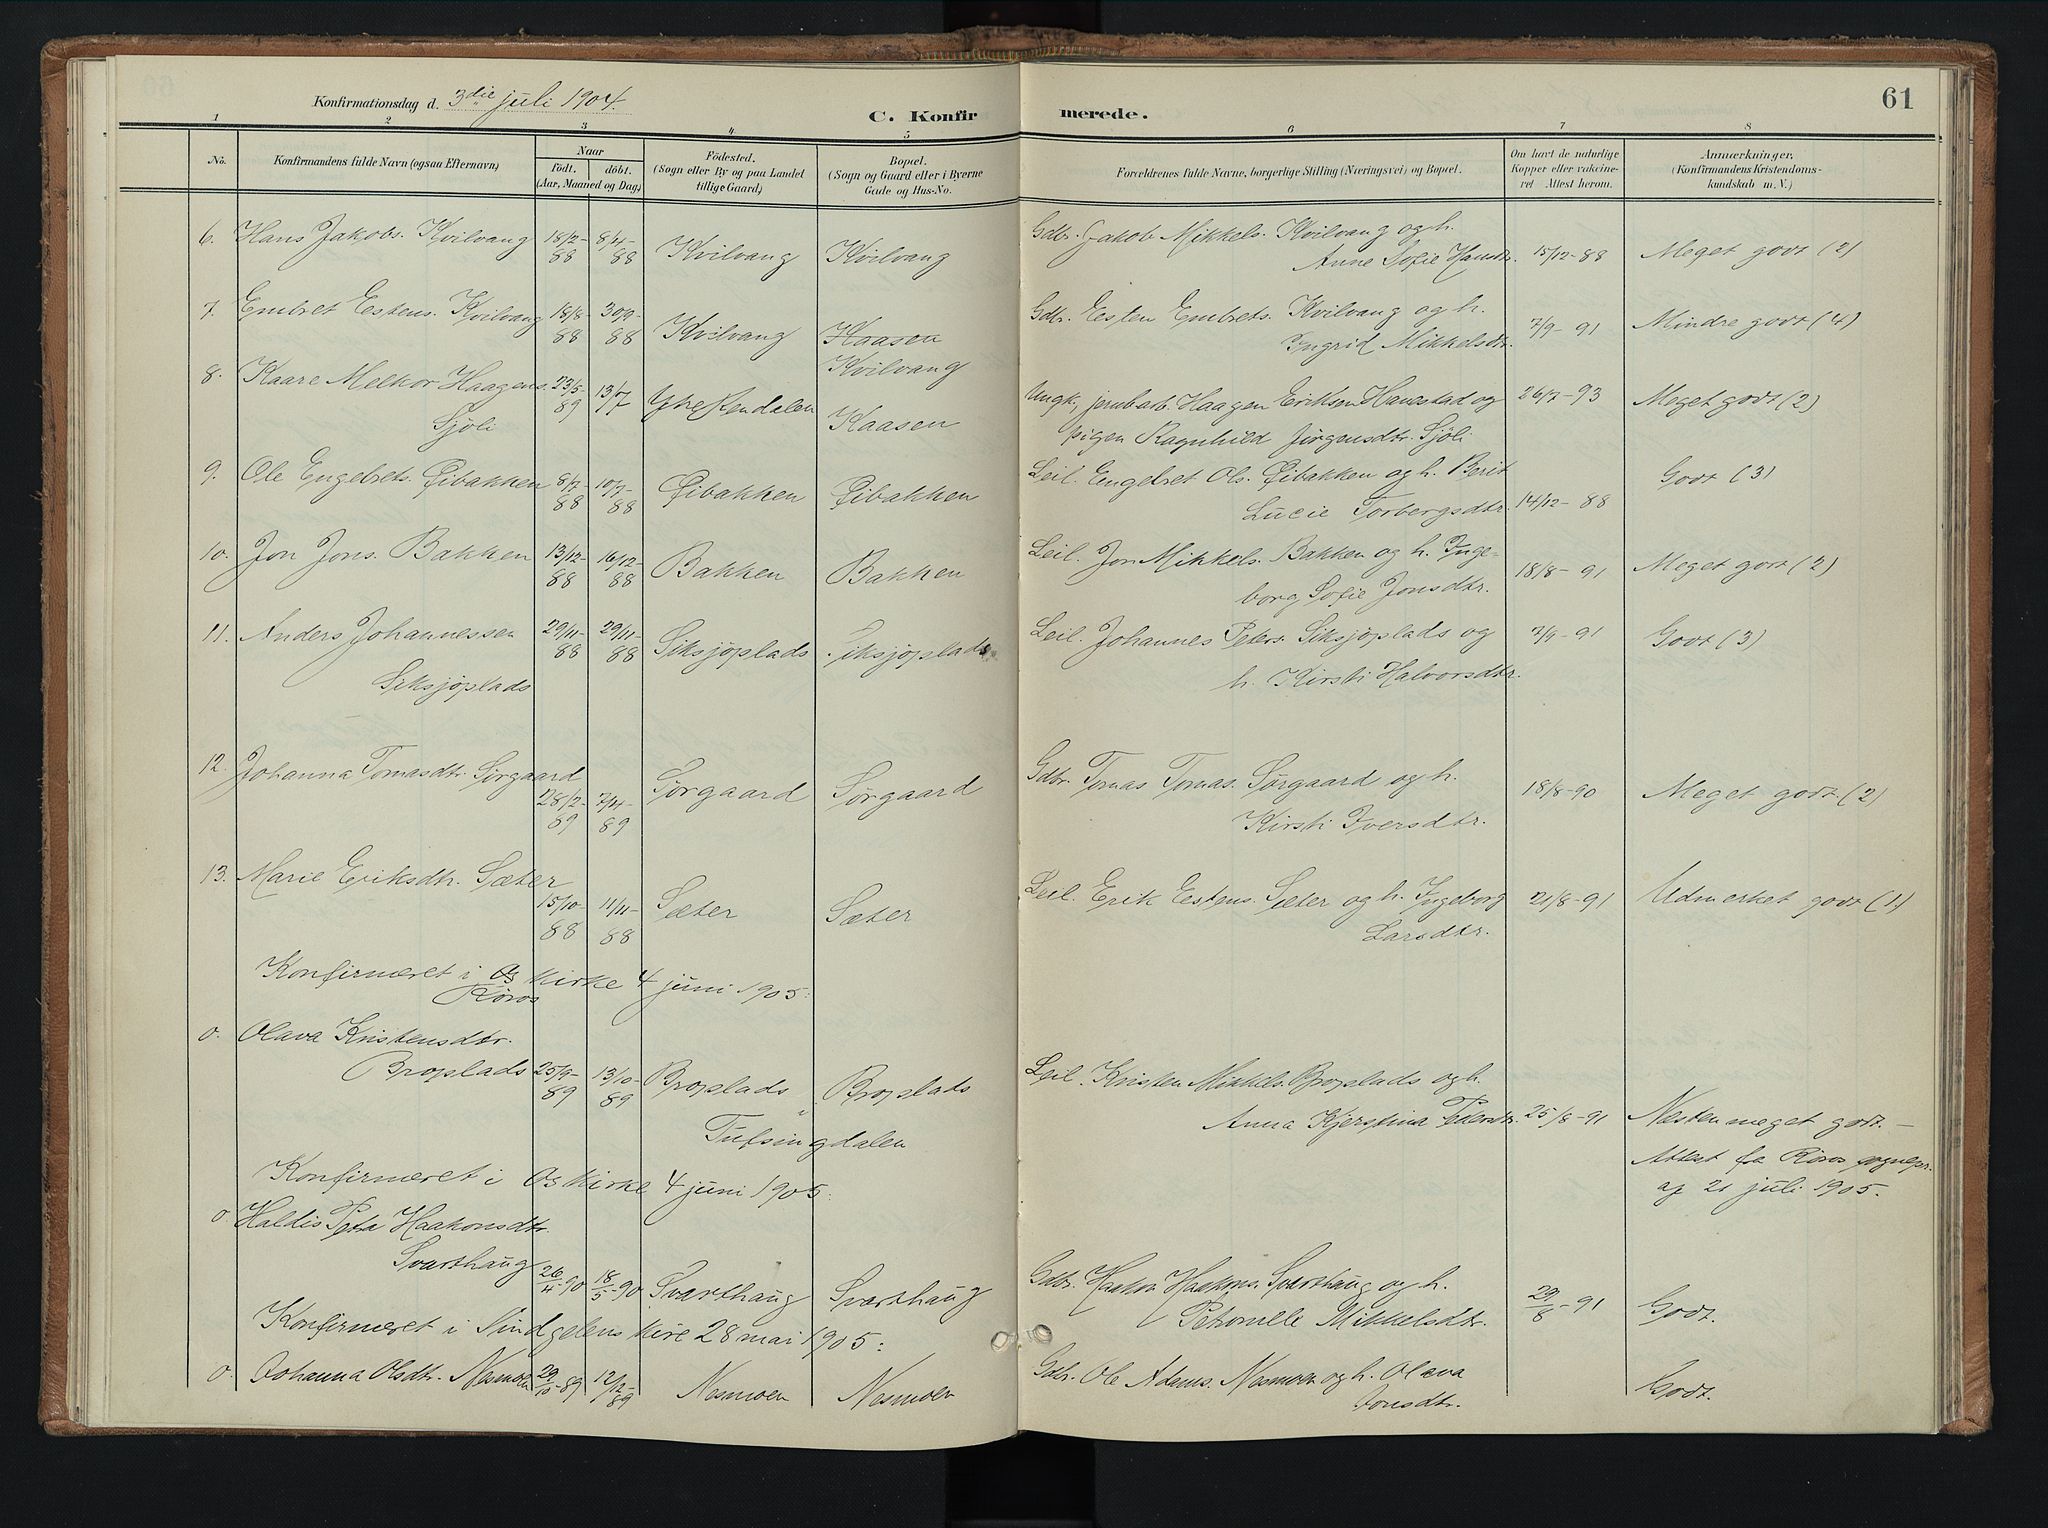 61
Konfirmationsdag d. 3die juli 1904.
C. Konfirmerede.
1 2 3 4 5 6 7 8
No. Konfirmandens fulde Navn (ogsaa Efternavn) Naar Födt. döbt. (Aar, Maaned og Dag) Födested. (Sogn eller By og paa Landet tillige Gaard) Bopæl. (Sogn og Gaard eller i Byerne Gade og Hus-No. Forældrenes fulde Navne, borgerlige Stilling (Næringsvei) og Bopæl. Om havt de naturlige Kopper eller vakcineret Attest herom. Anmærkninger. (Konfirmandens Kristendomskundskab m. V.)
6. Hans Jakobs. Kvilvang 18/2-88 8/4-88 Kvilvang Kvilvang Gdbr. Jakob Mikkels. Kvilvang og h.
Anne Sofie Hansdtr. 15/12-88 Meget godt (2)
7. Embret Estens. Kvilvang 18/8-88 30/9-88 Kvilvang Kaasen Kvilvang Gdbr. Esten Embrets. Kvilvang og h.
Ingrid Mikkelsdtr. 7/9-91 Mindre godt (4)
8. Kaare Melkor Haagens. 23/5-89 13/7 Kaasen Ungk, jernbarb. Haagen Eriksen Hanestad og 26/7-93 Meget godt (2)
Sjöli pigen Ragnhild Jörgensdtr. Sjöli
9. Ole Engebrets. Øibakken 8/7-88 10/7-88 Øibakken Øibakken Leil. Engebret Ols. Øibakken og h. Berit Godt (3)
Lucie Torbergsdtr. 14/12-88
10. Jon Jons. Bakken 13/12-88 16/12-88 Bakken Bakken Leil. Jon Mikkels. Bakken og h. Inge-
borg Sofie Jonsdtr. 18/8-91 Meget godt (2)
11. Anders Johannessen 29/11-88 29/11-88 Siksjöplads Siksjöplads Leil. Johannes Peters. Siksjöplads og 7/9-91 Godt (3)
Siksjöplads h. Kirsti Halvorsdtr.
12. Johanna Tomasdtr. Sörgaard 28/2-89 7/4-89 Sörgaard Sörgaard Gdbr. Tomas Tomas. Sörgaard og h.
Kirsti Iversdtr. 18/8-90 Meget godt. (2)
13. Marie Eriksdtr. Sæter 15/10-88 11/11-88 Sæter Sæter Leil. Erik Estens. Sæter og h. Ingeborg 21/8-91 Udmerket godt (1)
Larsdtr.
Konfirmeret i Os kirke 4 juni 1905:
Röros
0. Olava Kristensdtr.
Broplads 25/9-89 13/10-89 Broplads Broplads Leil. Kristen Mikkels. Broplads og h.
Tufsingdalen Anna Kjerstina Pedersdtr. 25/8-91 Nesten meget godt. -
Attest fra Röros sognepr.
af 21 juli 1905.
Konfirmeret i Os kirke 4 juni 1905:
0. Haldis Peta Haakonsdtr.
Svarthaug 26/4-90 18/5-90 Svarthaug Svarthaug Gdbr. Haakon Haakons. Svarthaug og h.
Petronelle Mikkelsdtr. 29/8-91 Godt.
Konfirmeret i 28 mai 1905:
0. Johanna Olsdtr. Nesmoen 29/10-89 12/12-89 Nesmoen Nesmoen Gdbr. Ole Adams. Nesmoen og h. Olava
Jonsdtr. Godt.